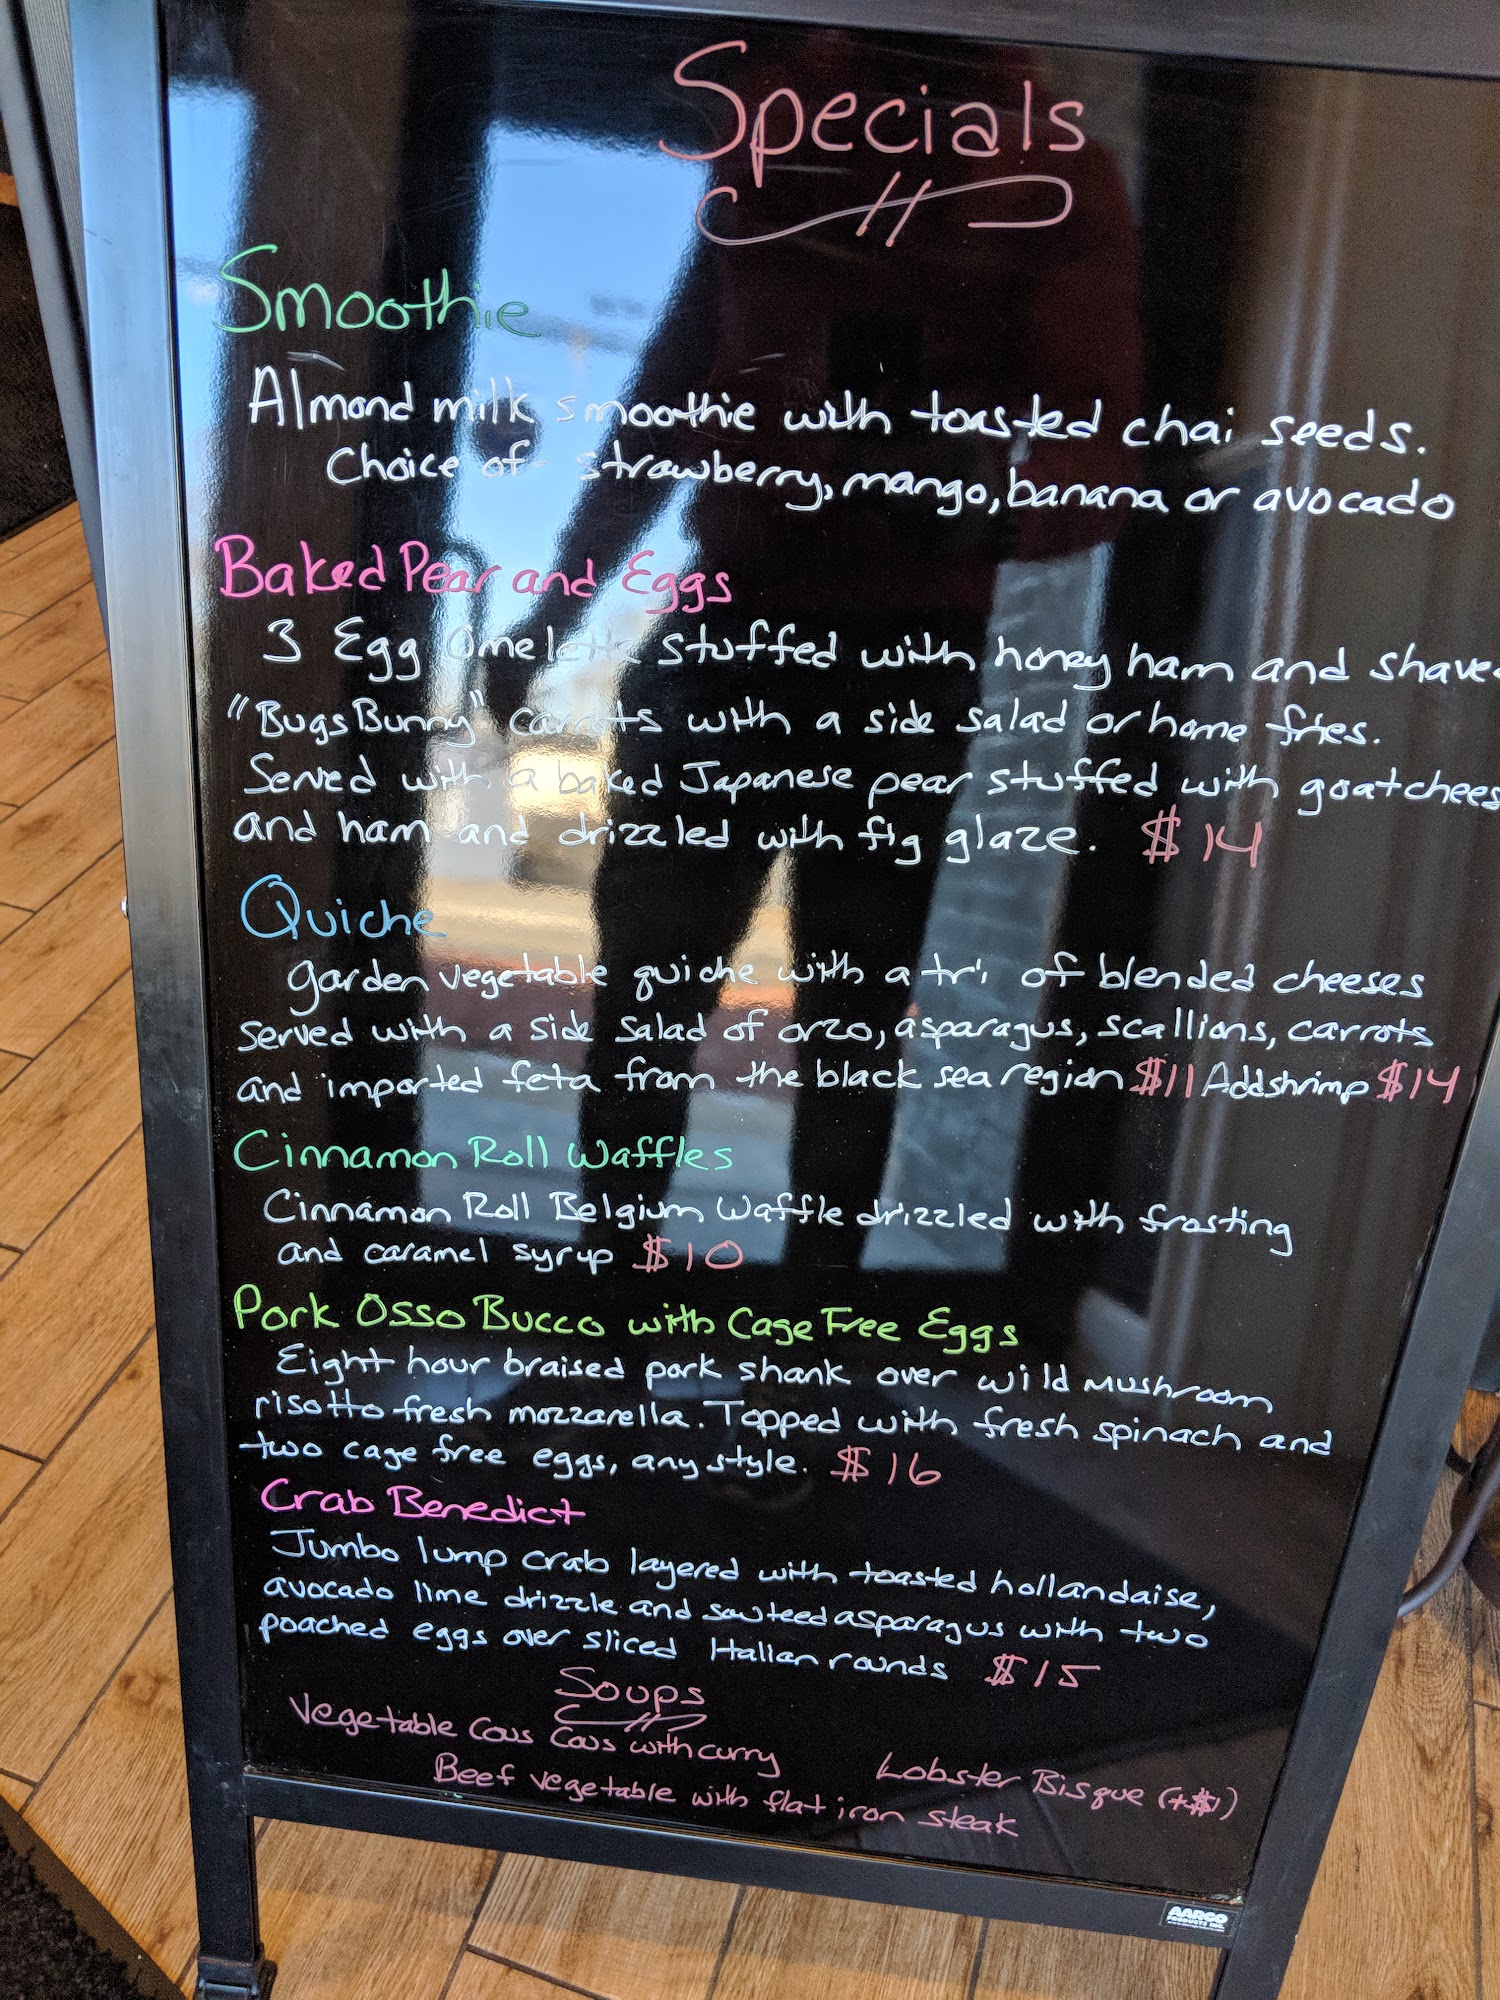 Specials
Smoothie
Almond milk smoothie with toasted chai seeds.
Choice of - strawberry, mango, banana or avocado
Baked Pear and Eggs
3 Egg Omelette stuffed with honey ham and shaved
"Bugs Bunny" carrots with a side salad or home fries.
Served with a baked Japanese pear stuffed with goat chees
and ham and drizzled with fig glaze. $14
Quiche
garden vegetable quiche with a tri of blended cheeses
served with a side salad of orzo, asparagus, scallions, carrots
and imported feta from the black sea region $11 Add shrimp $14
Cinnamon Roll Waffles
Cinnamon Roll Belgium Waffle drizzled with frosting
and caramel syrup $10
Pork Osso Bucco with Cage Free Eggs
Eight hour braised pork shank over wild mushroom
risotto fresh mozzarella. Topped with fresh spinach and
two cage free eggs, any style. $16
Crab Benedict
Jumbo lump crab layered with toasted hollandaise,
avocado lime drizzle and sawteed asparagus with two
poached eggs over sliced Italian rounds $15
Soups
Vegetable Cous Cous with curry
Lobster Bisque (+$1)
Beef vegetable with flat iron steak
AARCO
PRODUCTS INC.